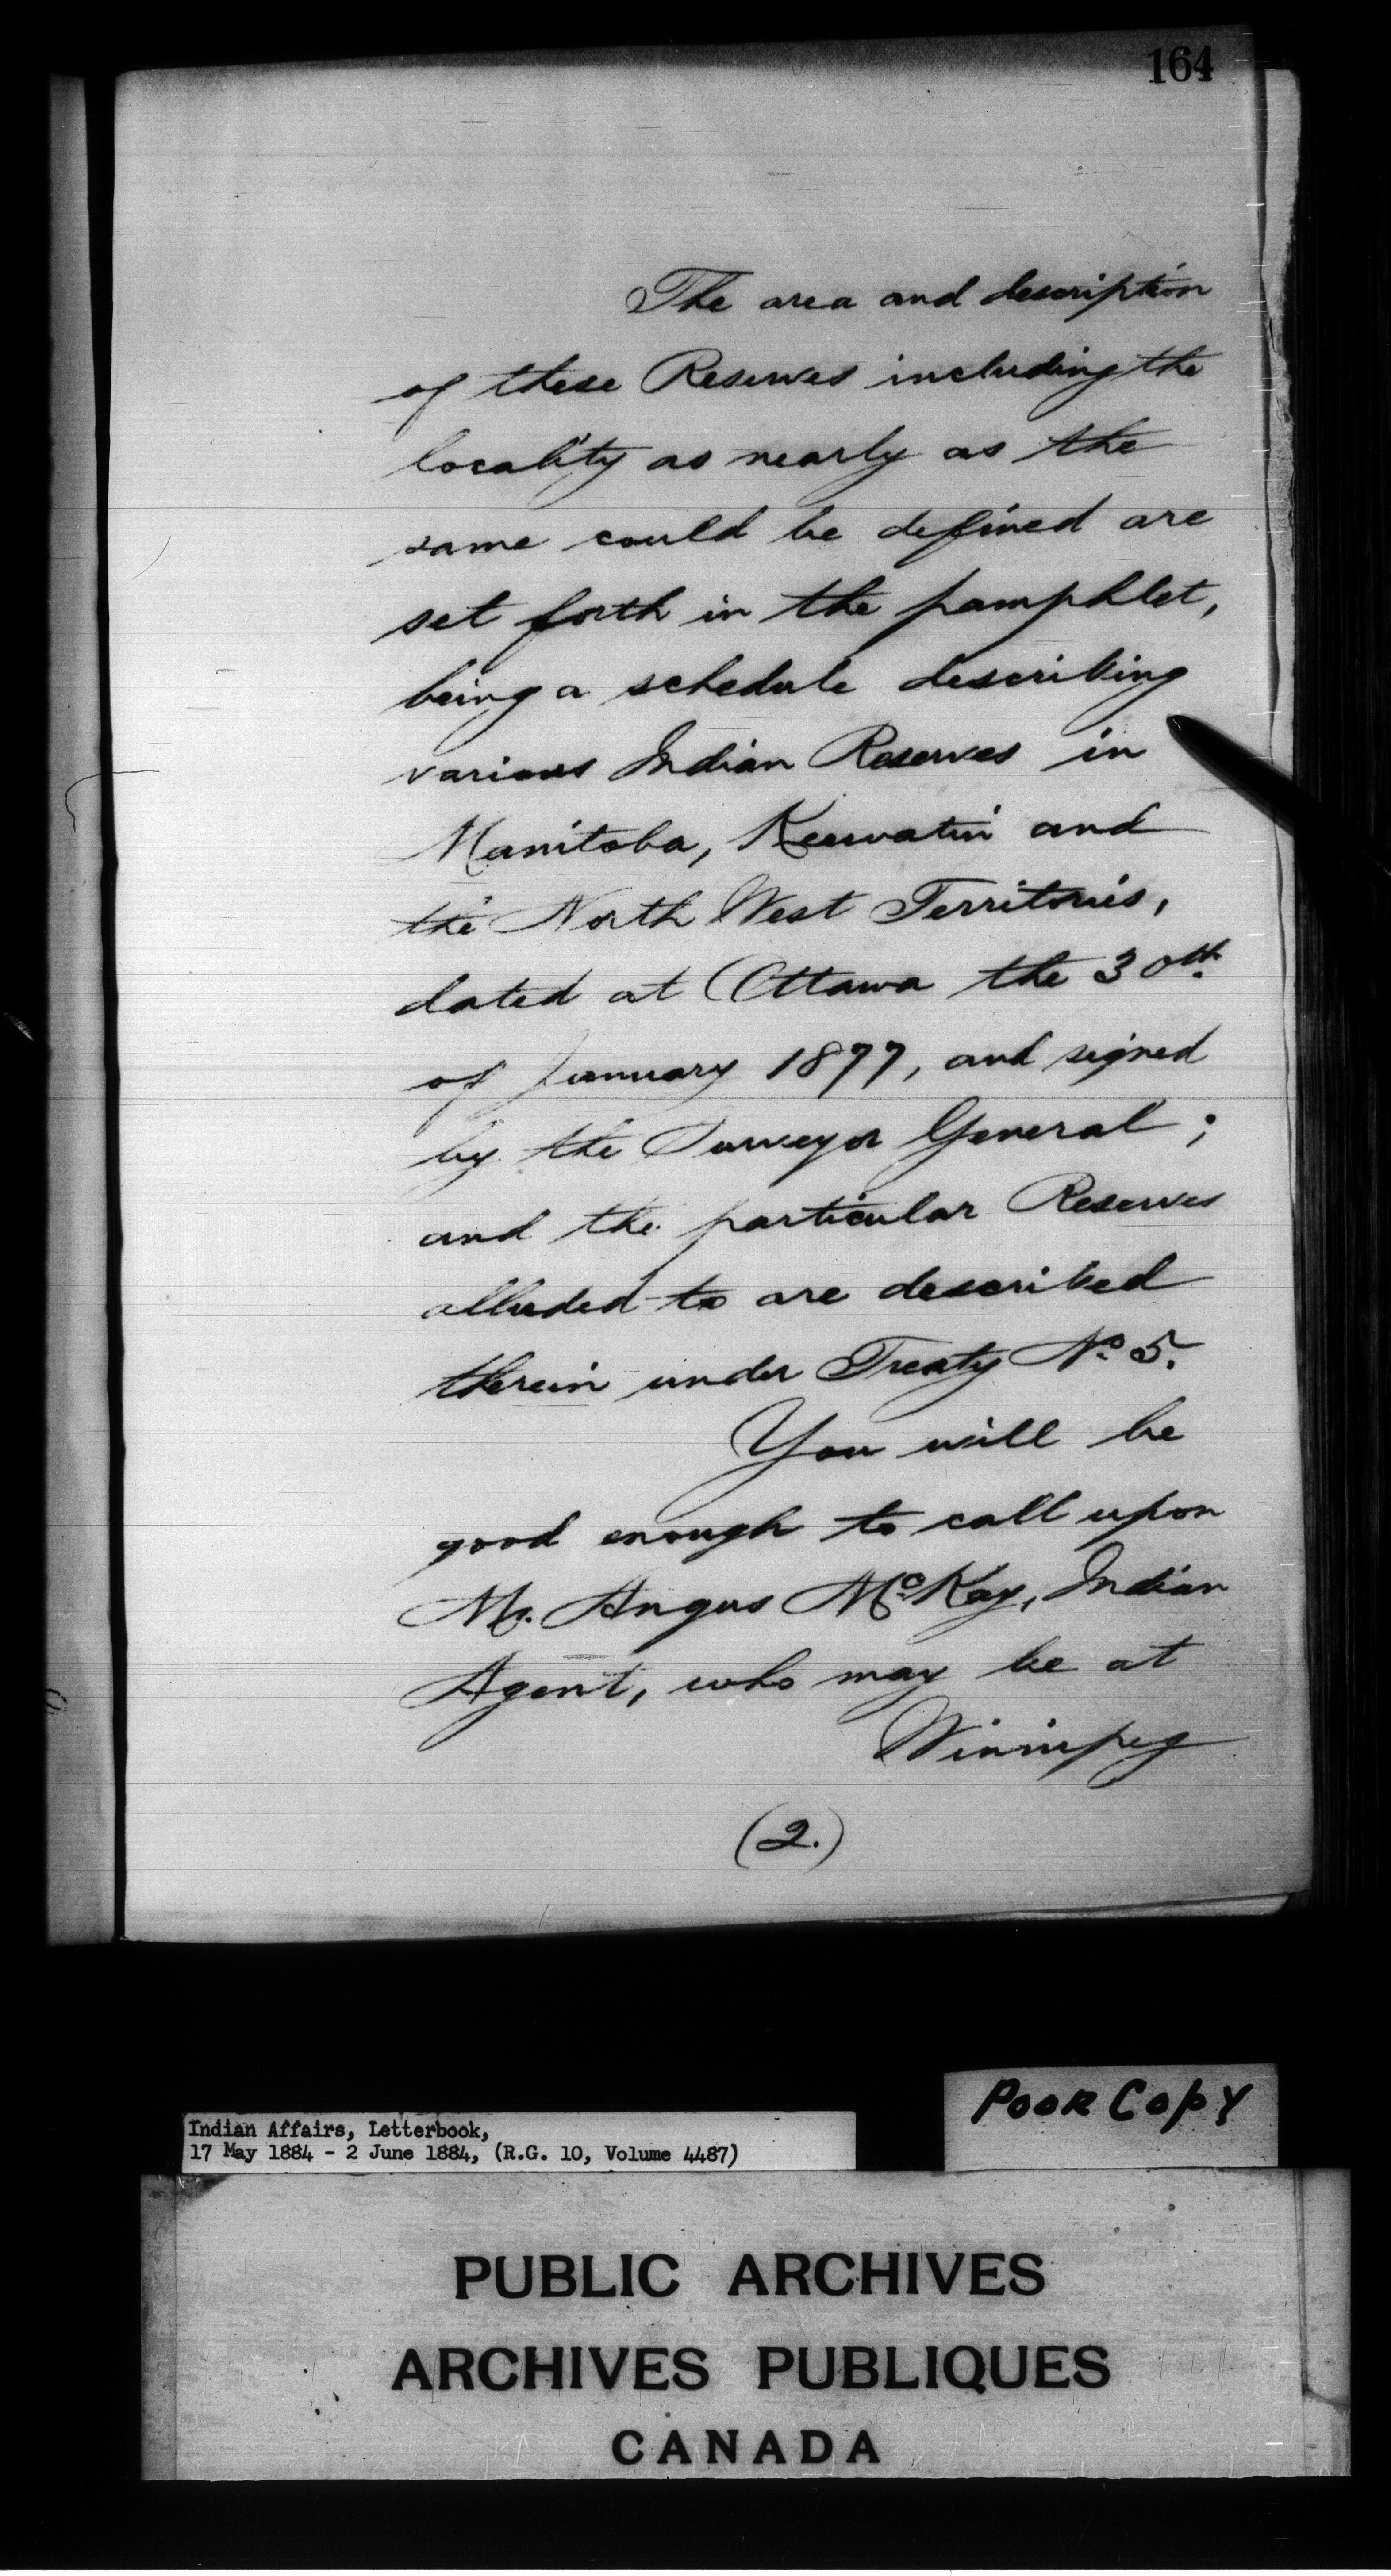 164
The area and description
of these Reserves including the
locality as nearly as the
same could be defined are
set forth in the pamphlet,
being a schedule describing
various Indian Reserves in
Manitoba, Keewatin and
the North West Territories,
dated at Ottawa the 30th.
of January 1877, and signed
by the Surveyor General;
and the particular Reserves
alluded to are described
therein under Treaty No. 5.
You will be
good enough to call upon
Mr. Angus McKay, Indian
Agent, who may be at
Winnipeg
(2.)
POOR COPY
Indian Affairs, Letterbook,
17 May 1884 - 2 June 1884, (R.G. 10, Volume 4487)
PUBLIC ARCHIVES
ARCHIVES PUBLIQUES
CANADA